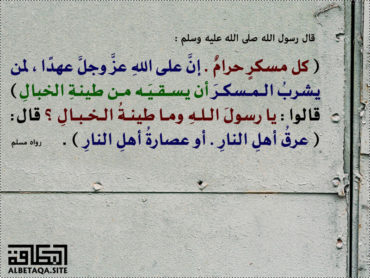 قال رسول الله صلى الله عليه وسلم :
( كل مسكرٍ حرامٌ . إنَّ على اللهِ عزَّ وجلَّ عهدًا ، لمن
يشربُ المسكرَ أن يسقيَه من طينةِ الخبالِ )
قالوا : يا رسولَ اللهِ وما طينةُ الخبالِ ؟ قال :
( عرقُ أهلِ النارِ . أو عصارةُ أهلِ النارِ ) . رواه مسلم
البطاقة
ALBETAQA.SITE